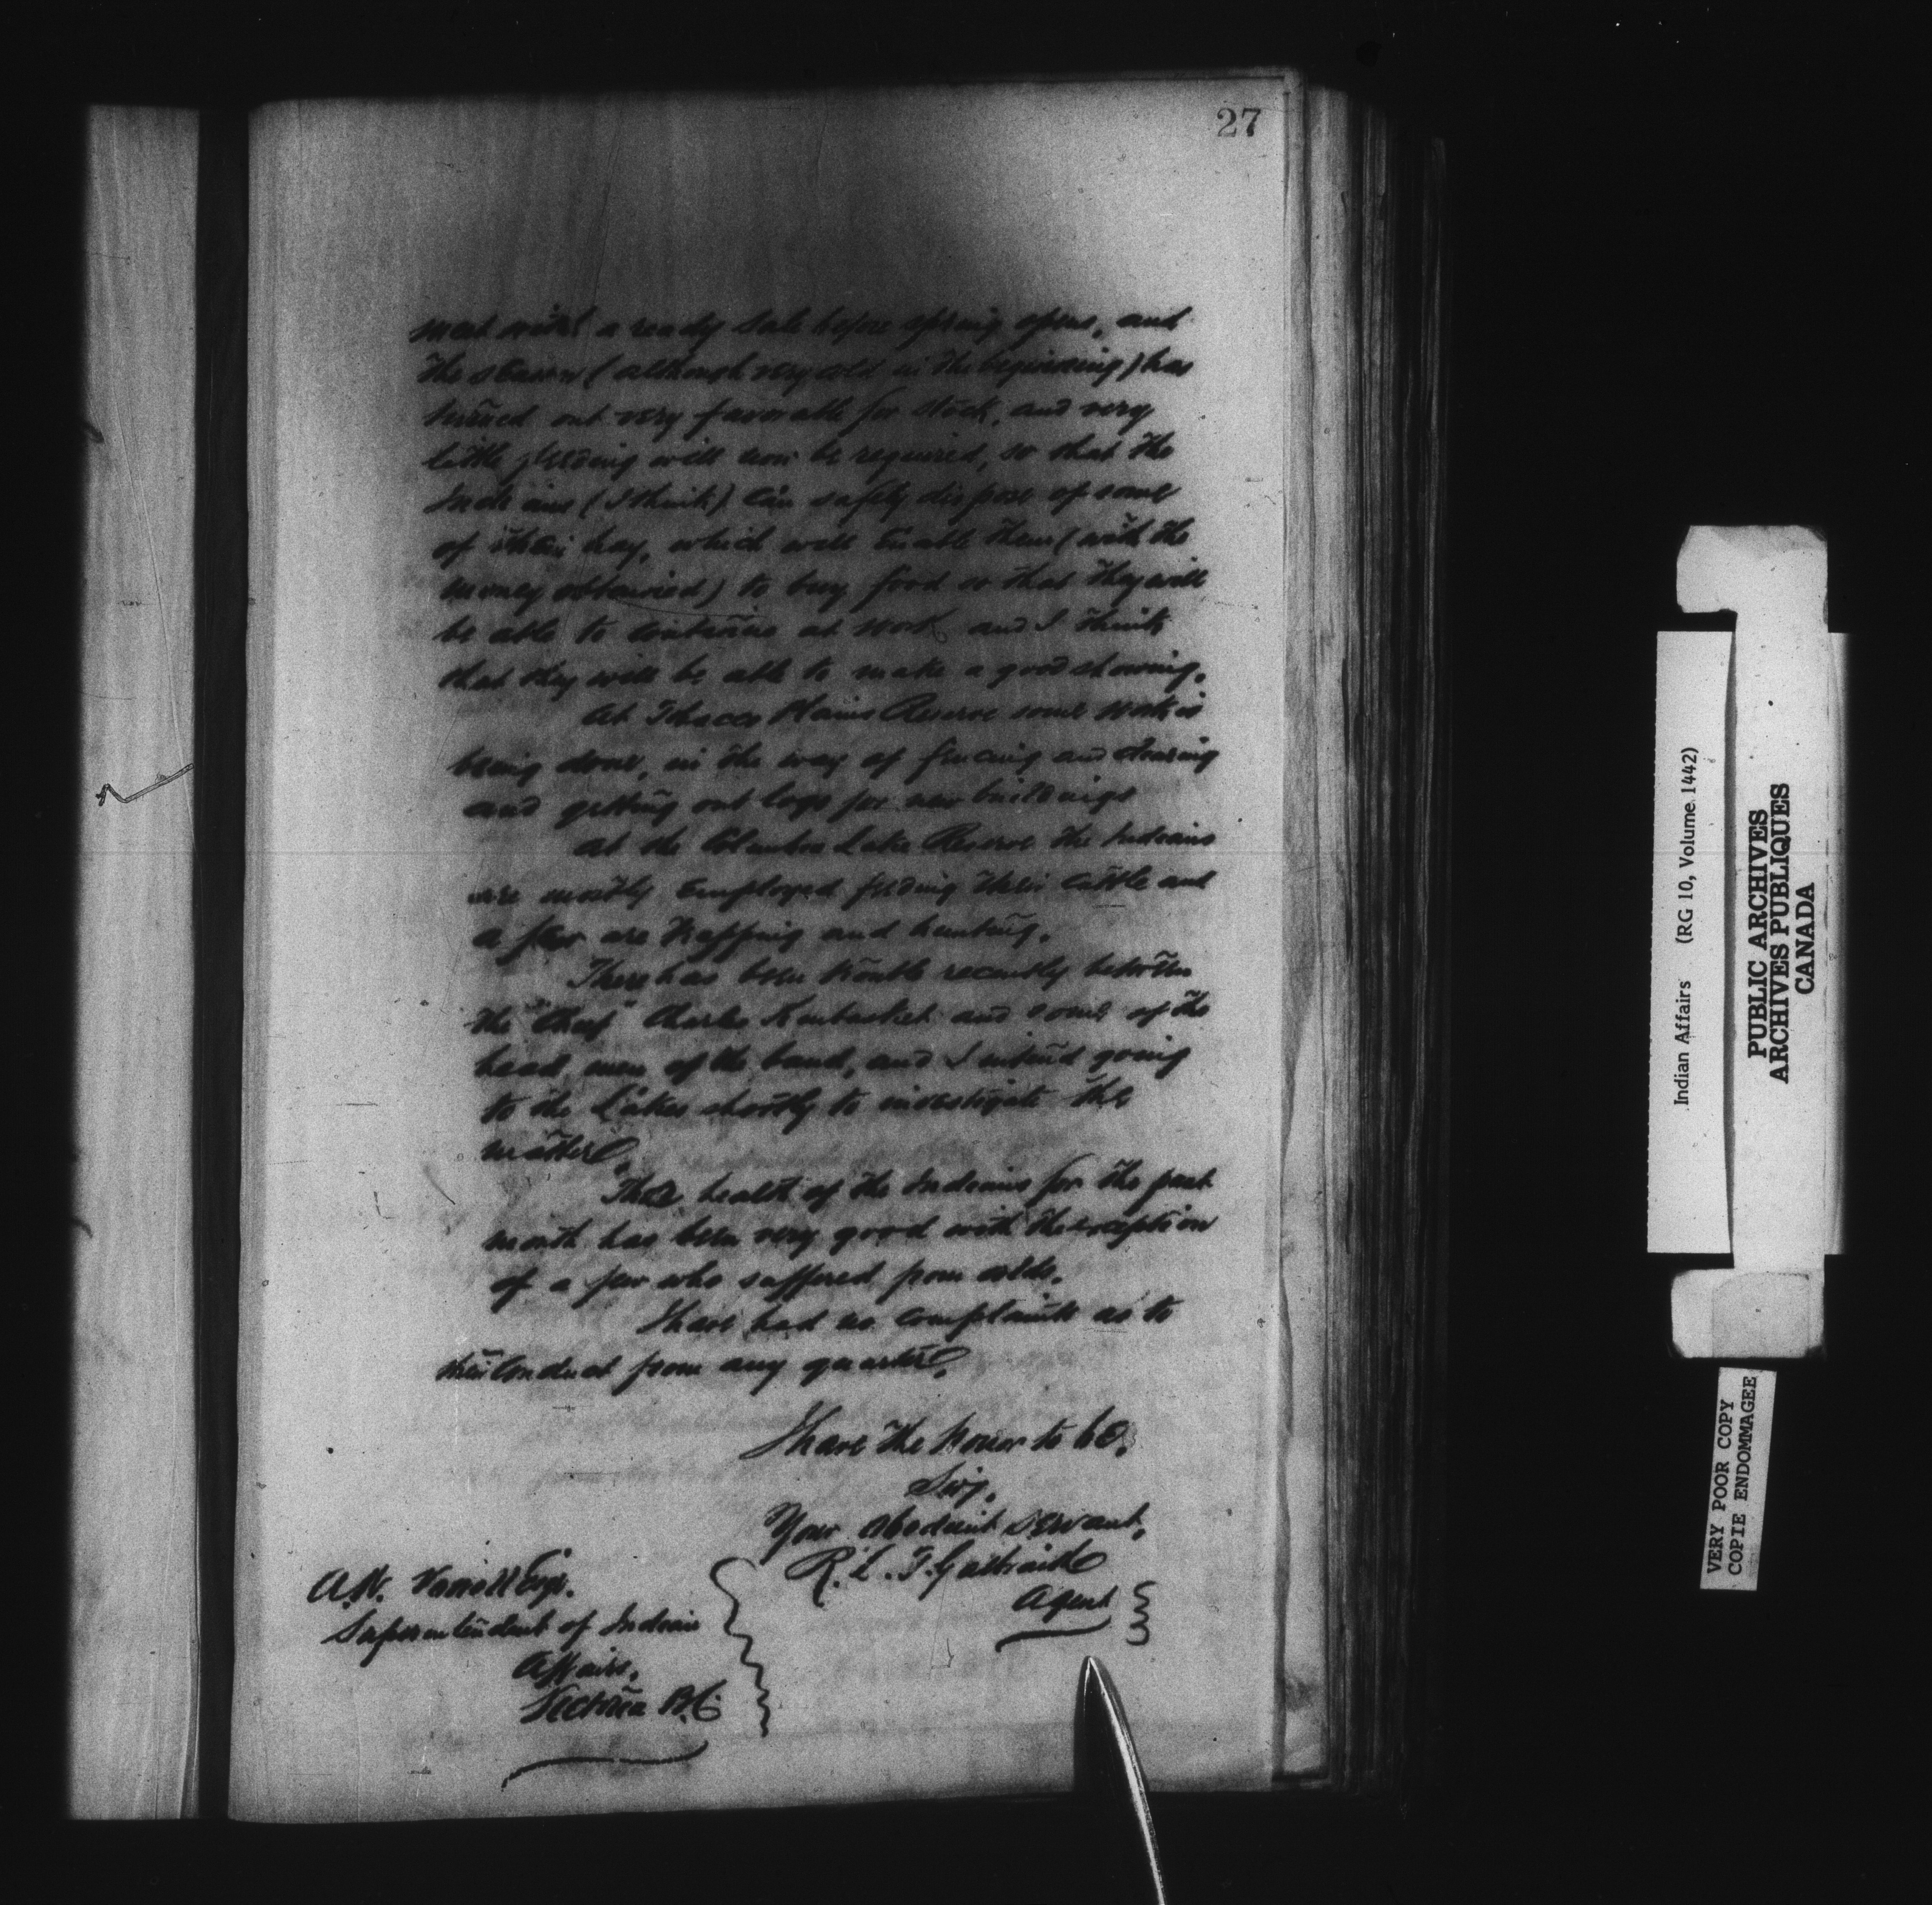 27
meet with a ready sale before spring opens, and
the season (although very cold in the beginning) has
turned out very favorable for stock, and very
little feeding will now be required, so that the
Indians (I think) can safely dispose of some
of their hay, which will enable them (with the
money obtained) to buy food so that they will
be able to continue at work and I think
that they will be able to make a good showing.
At Tobacco Plains Reserve some work is
being done, in the way of fencing and clearing
and getting out logs for new buildings
At the Columbia Lake Reserve the Indians
are mostly employed feeding their cattle and
a few are trapping and hunting.
There has been trouble recently between
the "Chief" Charles Kinbasket and some of the
head men of the band, and I intend going
to the Lakes shortly to investigate the
matter.
The health of the Indians for the past
month has been very good with the exception
of a few who suffered from colds.
I have had no complaints as to
their conduct from any quarter.
I have the honor to be,
Sir,
Your obedient servant,
R. L. T. Galbraith
Agent
A. W. Vowell Esqr.
Superintendent of Indian
Affairs,
Victoria B.C.
Indian Affairs (RG 10, Volume 1442)
PUBLIC ARCHIVES
ARCHIVES PUBLIQUES
CANADA
VERY POOR COPY
COPIE ENDOMMAGEE